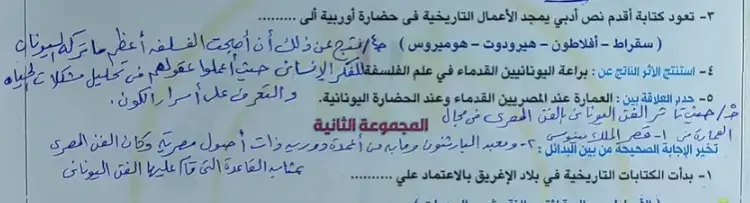 ٣- تعود كتابة أقدم نص أدبي يمجد الأعمال التاريخية فى حضارة أوربية ألى ..........
( سقراط - أفلاطون - هيرودوت - هوميروس )
جـ٤/ نتج عن ذلك أن أصبحت الفلسفه أعظم ما تركه اليونان
٤- استنتج الأثر الناتج عن : براعة اليونانيين القدماء في علم الفلسفة
للفكر الإنسانى حيث أعملوا عقولهم فى تحليل مشكلات الحياه
والتعرف على أسرار الكون.
٥- حدد العلاقة بين : العمارة عند المصريين القدماء وعند الحضارة اليونانية.
جـ٥/ حيث تأثر الفن اليونانى بالفن المصرى فى مجال
المجموعة الثانية
العمارة من ١- قصر الملك مينوس ٢- ومعبد البارثنون ومابه من أعمدة دوريه ذات أصول مصرية وكان الفن المصرى
تخير الإجابة الصحيحة من بين البدائل :
بمثابه القاعدة التى قام عليها الفن اليونانى
١- بدأت الكتابات التاريخية في بلاد الإغريق بالاعتماد علي ..........